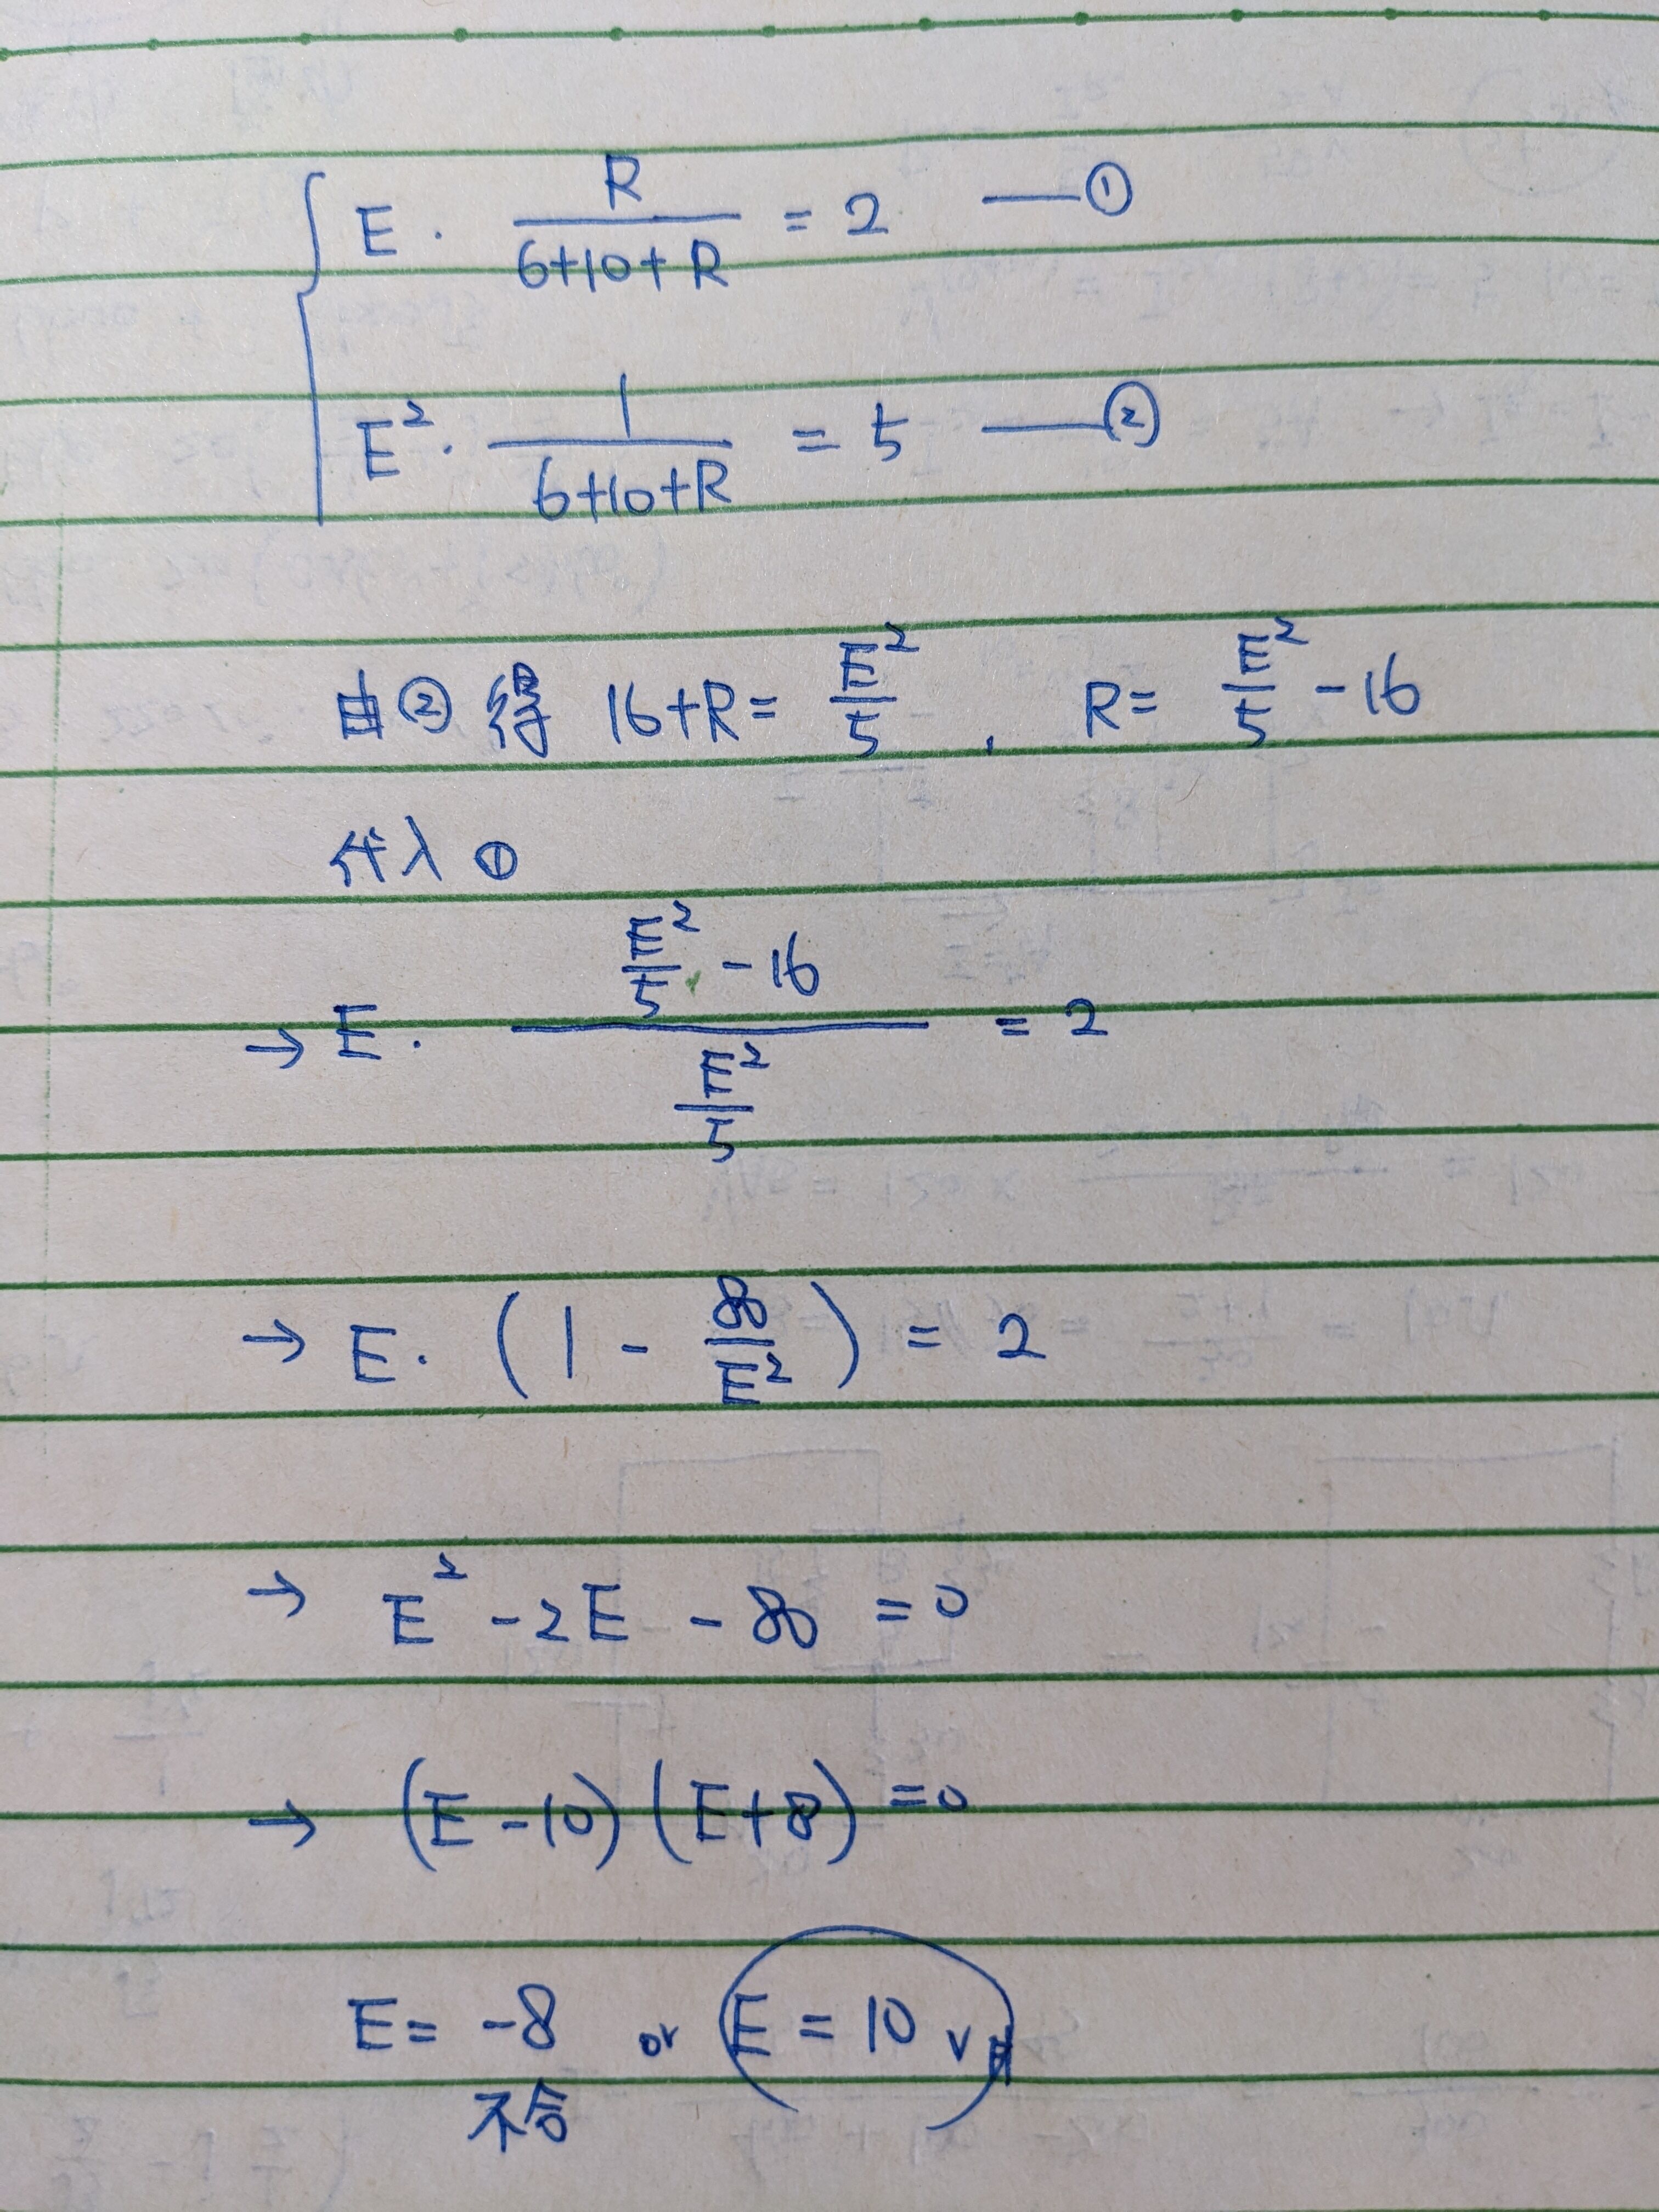 E · R/(6+10+R) = 2 —①
E² · 1/(6+10+R) = 5 —②
由②得 16+R = E²/5 , R = E²/5 - 16
代入①
→ E · (E²/5 - 16)/(E²/5) = 2
→ E · (1 - 80/E²) = 2
→ E² - 2E - 80 = 0
→ (E-10)(E+8) = 0
E = -8 or E = 10 V #
不合